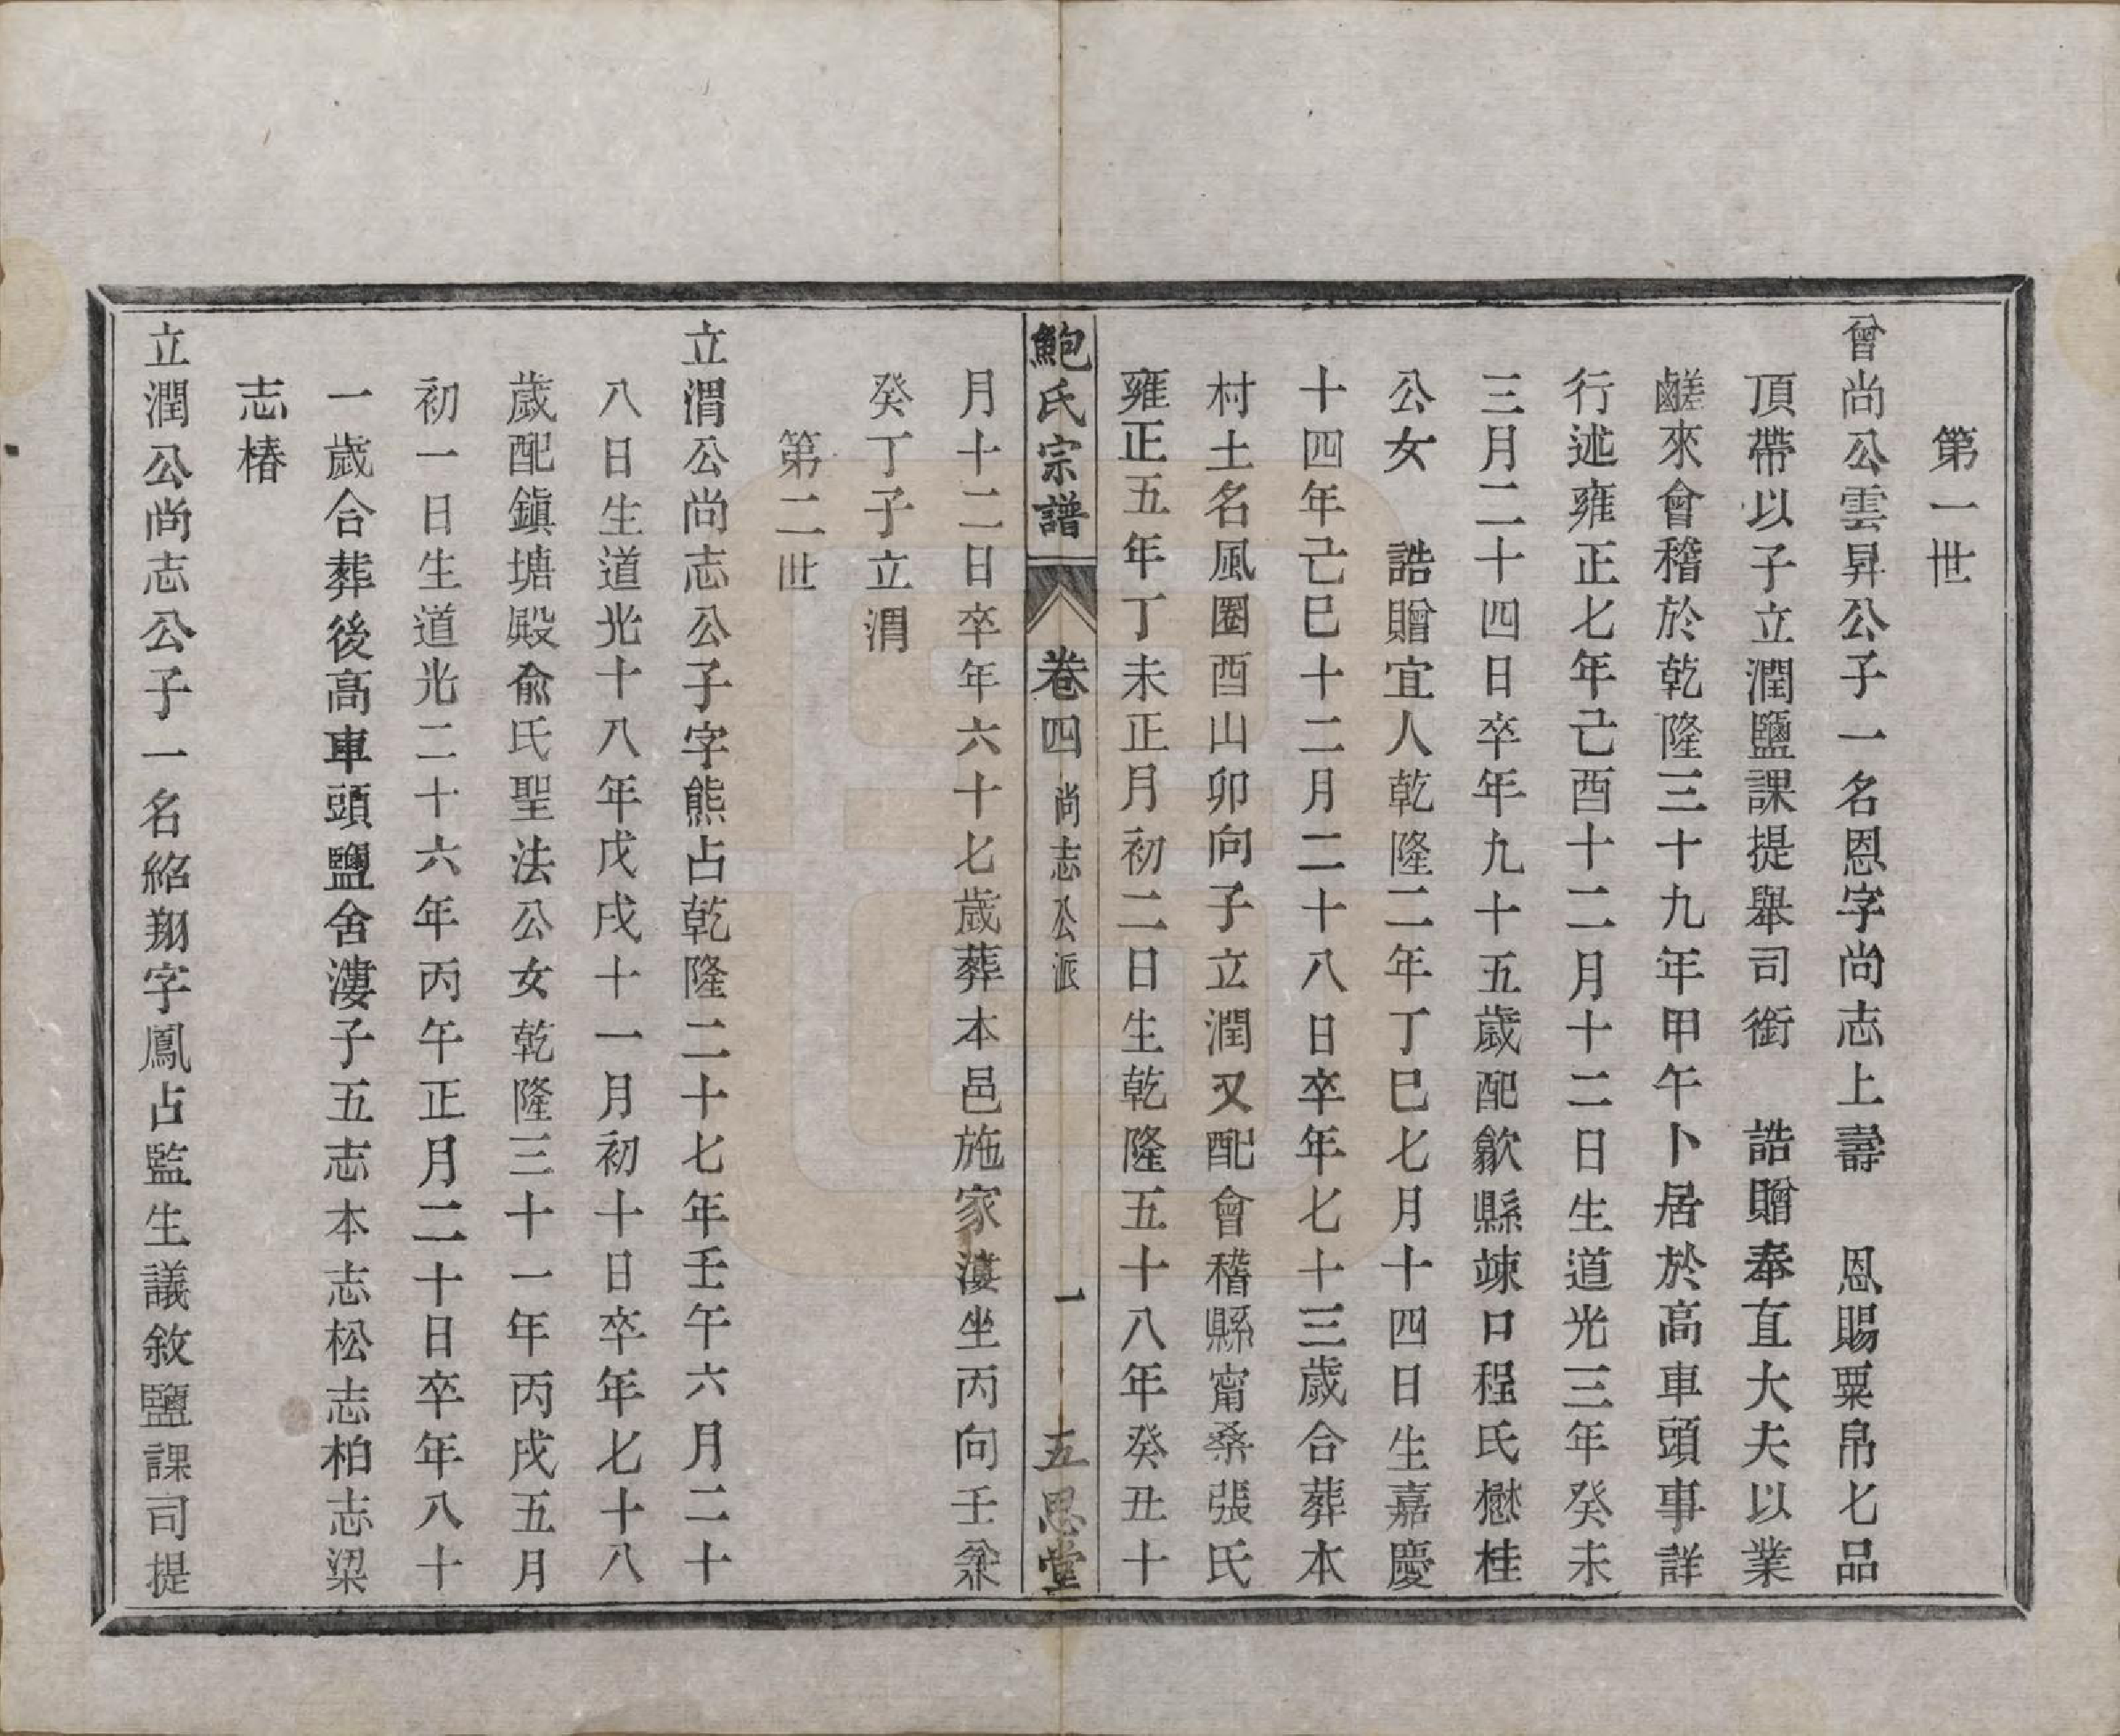 第一世
曾尚公雲昇公子一名恩字尚志上壽　恩賜粟帛七品
頂帶以子立潤鹽課提舉司銜　誥贈奉直大夫以業
鹺來會稽於乾隆三十九年甲午卜居於高車頭事詳
行述雍正七年己酉十二月十二日生道光三年癸未
三月二十四日卒年九十五歲配歙縣竦口程氏懋桂
公女　誥贈宜人乾隆二年丁巳七月十四日生嘉慶
十四年己巳十二月二十八日卒年七十三歲合葬本
村土名風圈酉山卯向子立潤又配會稽縣甯桑張氏
雍正五年丁未正月初二日生乾隆五十八年癸丑十
鮑氏宗譜　卷四　尚志公派　一　五思堂
月十二日卒年六十七歲葬本邑施家漊坐丙向壬兼
癸丁子立渭
第二世
立渭公尚志公子字熊占乾隆二十七年壬午六月二十
八日生道光十八年戊戌十一月初十日卒年七十八
歲配鎮塘殿俞氏聖法公女乾隆三十一年丙戌五月
初一日生道光二十六年丙午正月二十日卒年八十
一歲合葬後高車頭鹽舍漊子五志本志松志柏志梁
志椿
立潤公尚志公子一名紹翔字鳳占監生議敘鹽課司提